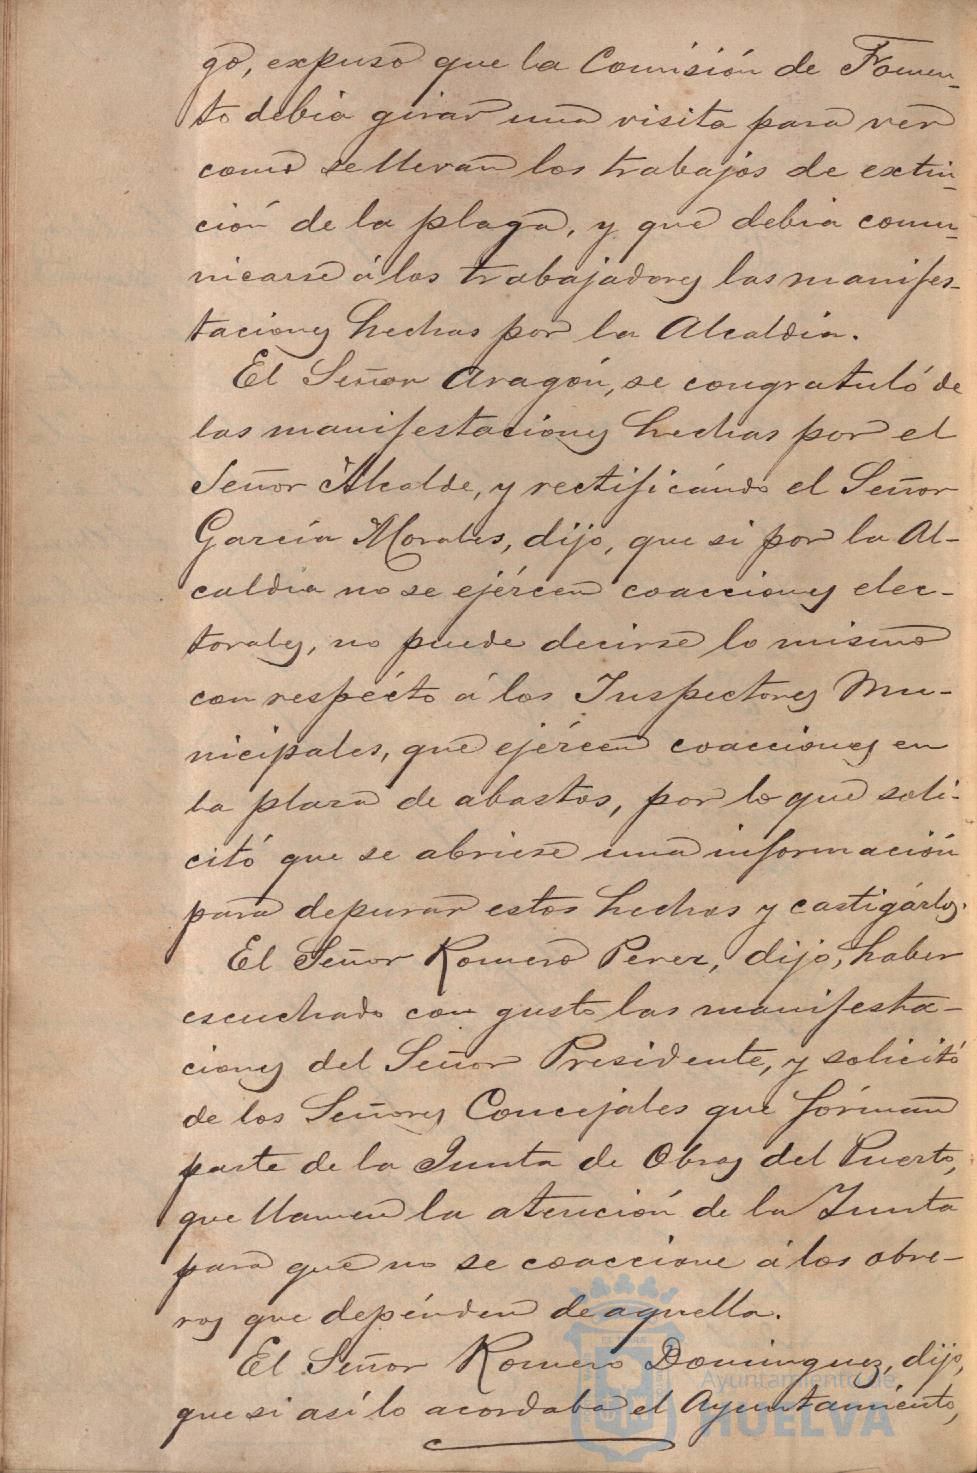 go, expuso que la Comisión de Fomen-
to debia girar una visita para ver
como se llevan los trabajos de extin-
ción de la plaga, y que debia comu-
nicarse á los trabajadores las manifes-
taciones hechas por la Alcaldia.
El Señor Aragón, se congratuló de
las manifestaciones hechas por el
Señor Alcalde, y rectificándo el Señor
García Morales, dijo, que si por la Al-
caldia no se ejércen coacciones elec-
torales, no puede decirse lo mismo
con respécto á los Inspectores Mu-
nicipales, que ejércen coacciones en
la plaza de abastos, por lo que soli-
citó que se abriese una información
para depurar estos hechos y castigárlos.
El Señor Romero Perez, dijo, haber
escuchado con gusto las manifesta-
ciones del Señor Presidente, y solicitó
de los Señores Concejales que fórman
parte de la Junta de Obras del Puerto,
que llamen la atención de la Junta
para que no se coaccione á los obre-
ros que depénden de aquella.
El Señor Romero Dominguez, dijo,
que si así lo acordaba el Ayuntamiento,
Ayuntamiento de
HUELVA